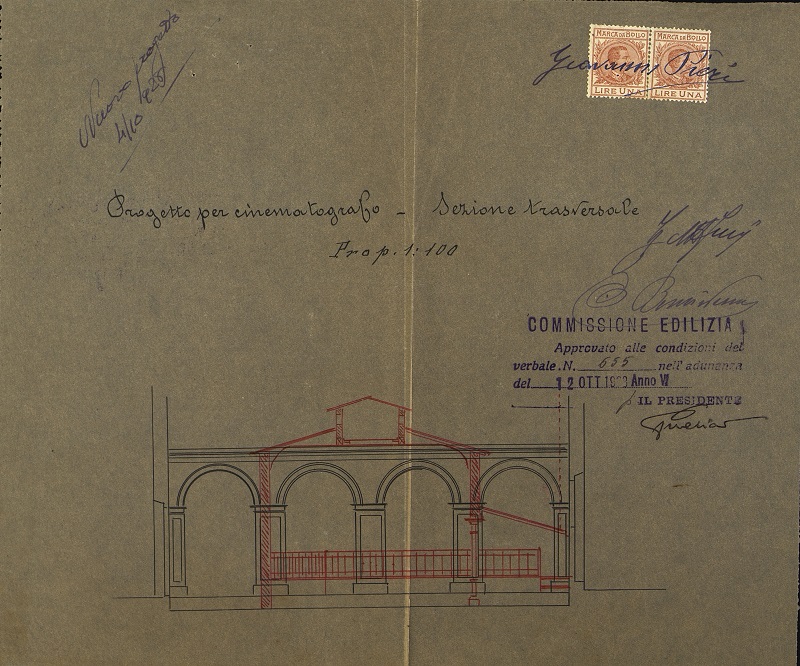 Nuovo progetto
4/10 928
MARCA DA BOLLO MARCA DA BOLLO
Giovanni Pieri
LIRE UNA LIRE UNA
Progetto per cinematografo - Sezione trasversale
Prop. 1:100
COMMISSIONE EDILIZIA
Approvato alle condizioni del
verbale N. 655 nell'adunanza
del 12 OTT. 1928 Anno VI
IL PRESIDENTE